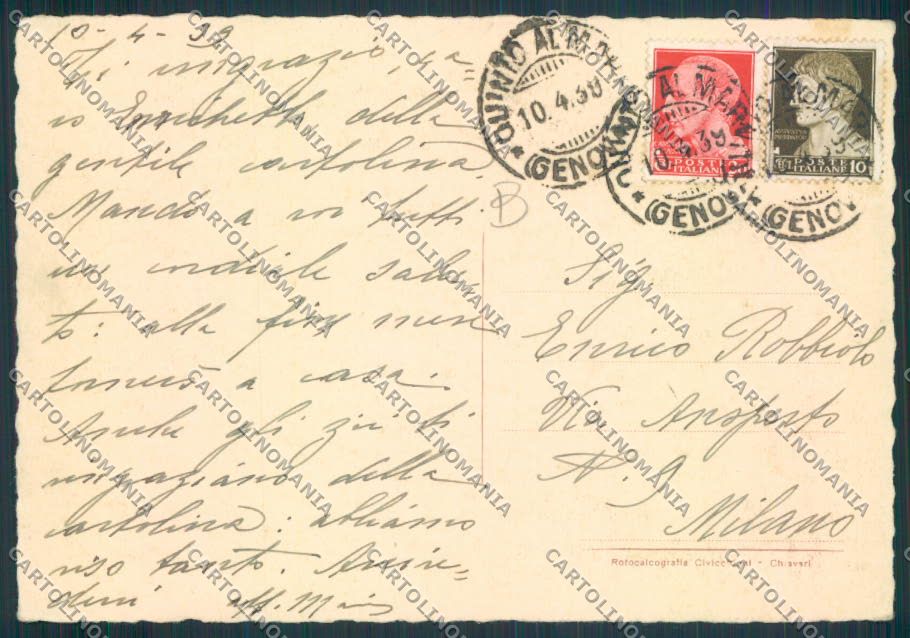 10-4-39
Ti ringrazio, ca-
ro Enrichetto della
gentile cartolina.
Mando a voi tutti
un cordiale salu-
to: alla fine mese
tornerò a casa.
Anche gli zii ti
ringraziano della
cartolina: abbiamo
riso tanto. Arrive-
derci aff.
QUINTO AL MARE
10.4.39
(GENOVA)
POSTE
ITALIANE
POSTE
ITALIANE
10
B
Sig.
Enrico Robbiolo
Via
N. 9
Milano
Rotocalcografia Civicchioni - Chiavari
CARTOLINOMANIA